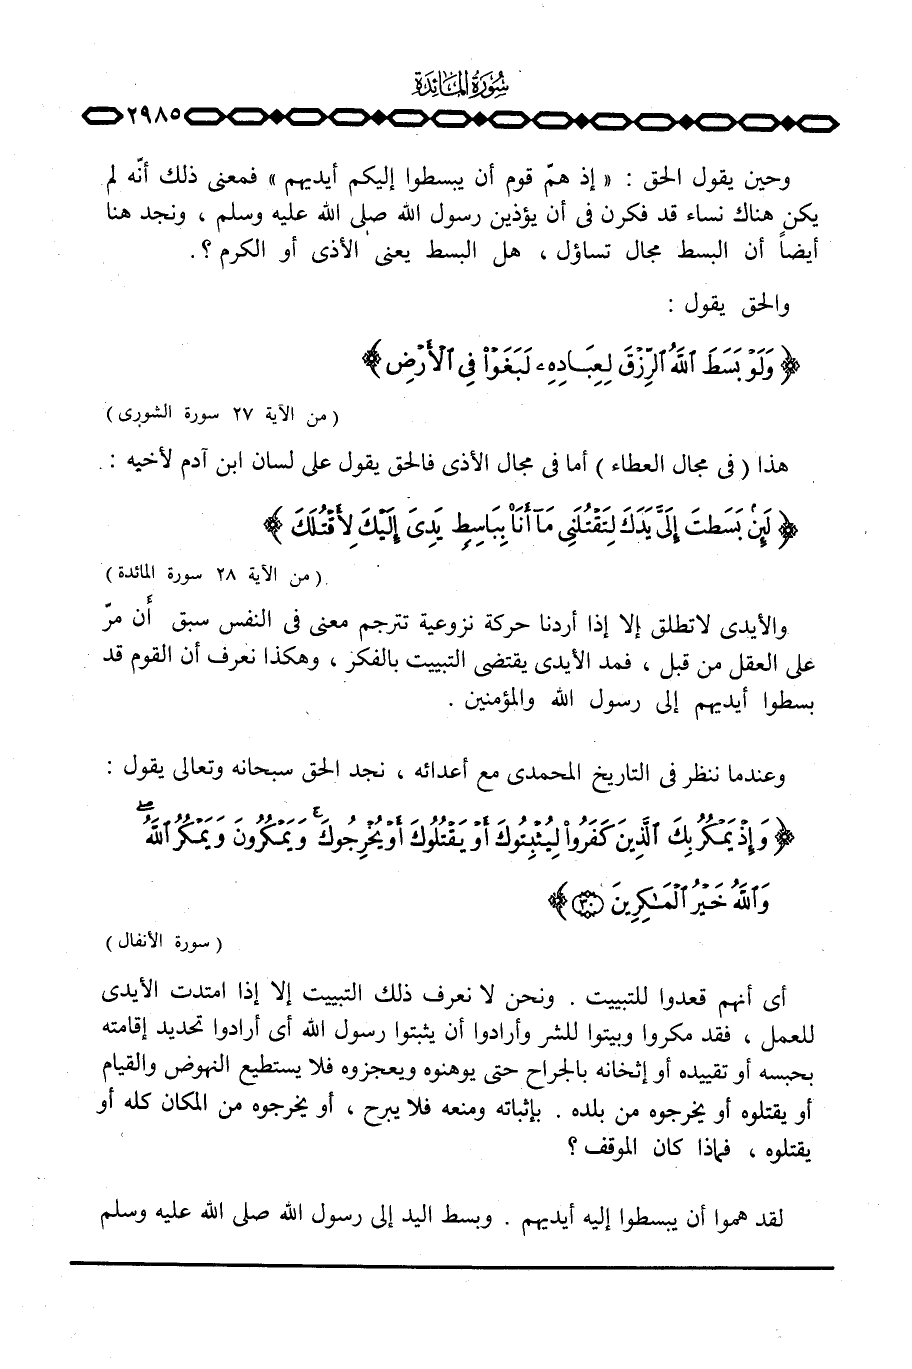 سُورَةُ المَائِدَة
٢٩٨٥
وحين يقول الحق : « إذ همّ قوم أن يبسطوا إليكم أيديهم » فمعنى ذلك أنّه لم
يكن هناك نساء قد فكرن فى أن يؤذين رسول الله صلى الله عليه وسلم ، ونجد هنا
أيضاً أن البسط مجال تساؤل ، هل البسط يعنى الأذى أو الكرم ؟ .
والحق يقول :
﴿ وَلَوْ بَسَطَ ٱللَّهُ ٱلرِّزْقَ لِعِبَادِهِۦ لَبَغَوْا۟ فِى ٱلْأَرْضِ ﴾
( من الآية ٢٧ سورة الشورى )
هذا ( فى مجال العطاء ) أما فى مجال الأذى فالحق يقول على لسان ابن آدم لأخيه :
﴿ لَئِنۢ بَسَطتَ إِلَىَّ يَدَكَ لِتَقْتُلَنِى مَآ أَنَا۠ بِبَاسِطٍ يَدِىَ إِلَيْكَ لِأَقْتُلَكَ ﴾
( من الآية ٢٨ سورة المائدة )
والأيدى لاتطلق إلا إذا أردنا حركة نزوعية تترجم معنى فى النفس سبق أَن مرّ
على العقل من قبل ، فمد الأيدى يقتضى التبييت بالفكر ، وهكذا نعرف أن القوم قد
بسطوا أيديهم إلى رسول الله والمؤمنين .
وعندما ننظر فى التاريخ المحمدى مع أعدائه ، نجد الحق سبحانه وتعالى يقول :
﴿ وَإِذْ يَمْكُرُ بِكَ ٱلَّذِينَ كَفَرُوا۟ لِيُثْبِتُوكَ أَوْ يَقْتُلُوكَ أَوْ يُخْرِجُوكَ ۚ وَيَمْكُرُونَ وَيَمْكُرُ ٱللَّهُ ۖ
وَٱللَّهُ خَيْرُ ٱلْمَـٰكِرِينَ ٣٠ ﴾
( سورة الأنفال )
أى أنهم قعدوا للتبييت . ونحن لا نعرف ذلك التبييت إلا إذا امتدت الأيدى
للعمل ، فقد مكروا وبيتوا للشر وأرادوا أن يثبتوا رسول الله أى أرادوا تحديد إقامته
بحبسه أو تقييده أو إثخانه بالجراح حتى يوهنوه ويعجزوه فلا يستطيع النهوض والقيام
أو يقتلوه أو يخرجوه من بلده . بإثباته ومنعه فلا يبرح ، أو يخرجوه من المكان كله أو
يقتلوه ، فماذا كان الموقف ؟
لقد هموا أن يبسطوا إليه أيديهم . وبسط اليد إلى رسول الله صلى الله عليه وسلم